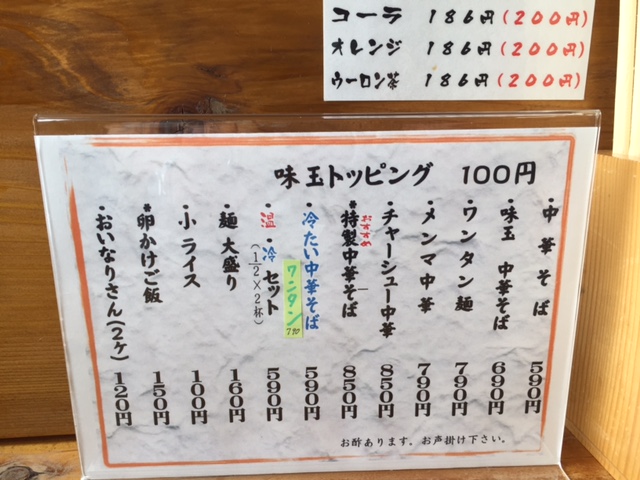 コーラ 186円(200円)
オレンジ 186円(200円)
ウーロン茶 186円(200円)
味玉トッピング 100円
・中華そば 590円
・味玉 中華そば 690円
・ワンタン麺 790円
・メンマ中華 790円
・チャーシュー中華 850円
おすすめ
*特製中華そば 850円
・冷たい中華そば 590円
ワンタン
・温・冷セット 590円
(1/2×2杯)
・麺大盛り 160円
・小ライス 100円
*卵かけご飯 150円
・おいなりさん(2ケ) 120円
お酢あります。お声掛け下さい。